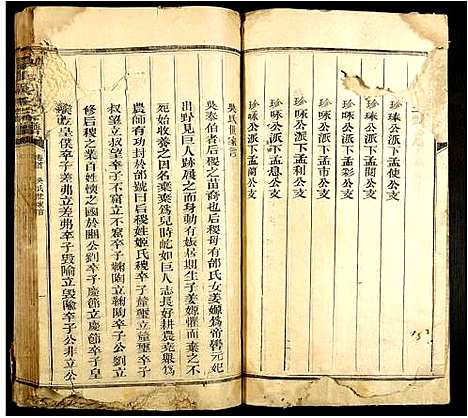 珍琜公派下孟使公支
珍咏公派下孟商公支
珍咏公派下孟彩公支
珍咏公派下孟市公支
珍咏公派下孟利公支
珍咏公派下孟息公支
珍咏公派下孟蘭公支
吳氏世家言
吳泰伯者后稷之苗裔也后稷母有邰氏女姜嫄爲帝嚳元妃
出野見巨人跡履之身動乃有娠居期生子姜嫄懼而棄之不
死始收養之因名棄棄爲兒時屹如巨人志長好耕農堯舉爲
農師有功封於邰號曰后稷姓姬氏稷卒子
叔望立叔望卒子不窋立不窋卒子鞠陶立鞠陶卒子公劉立
修后稷之業百姓懷之國於豳公劉卒子慶節立慶節卒子皇
僕立皇僕卒子差弗立差弗卒子毀隃立毀隃卒子公非立公
譜
卷首
吳氏世家言